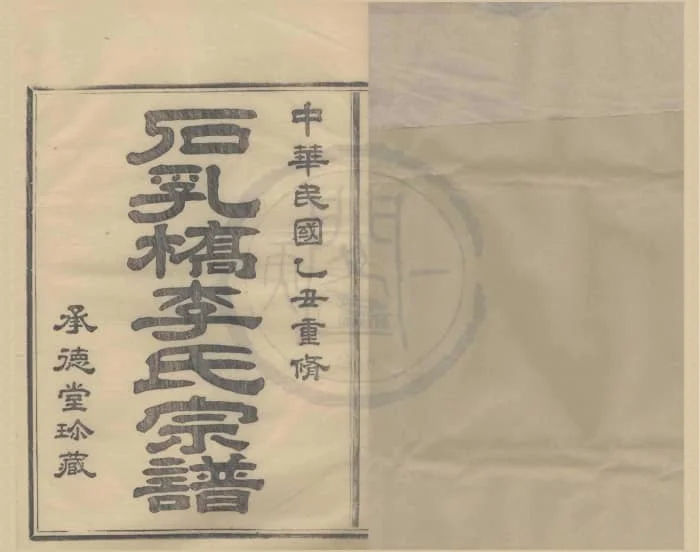 中華民國乙丑重脩
石乳橋李氏宗譜
承德堂珍藏